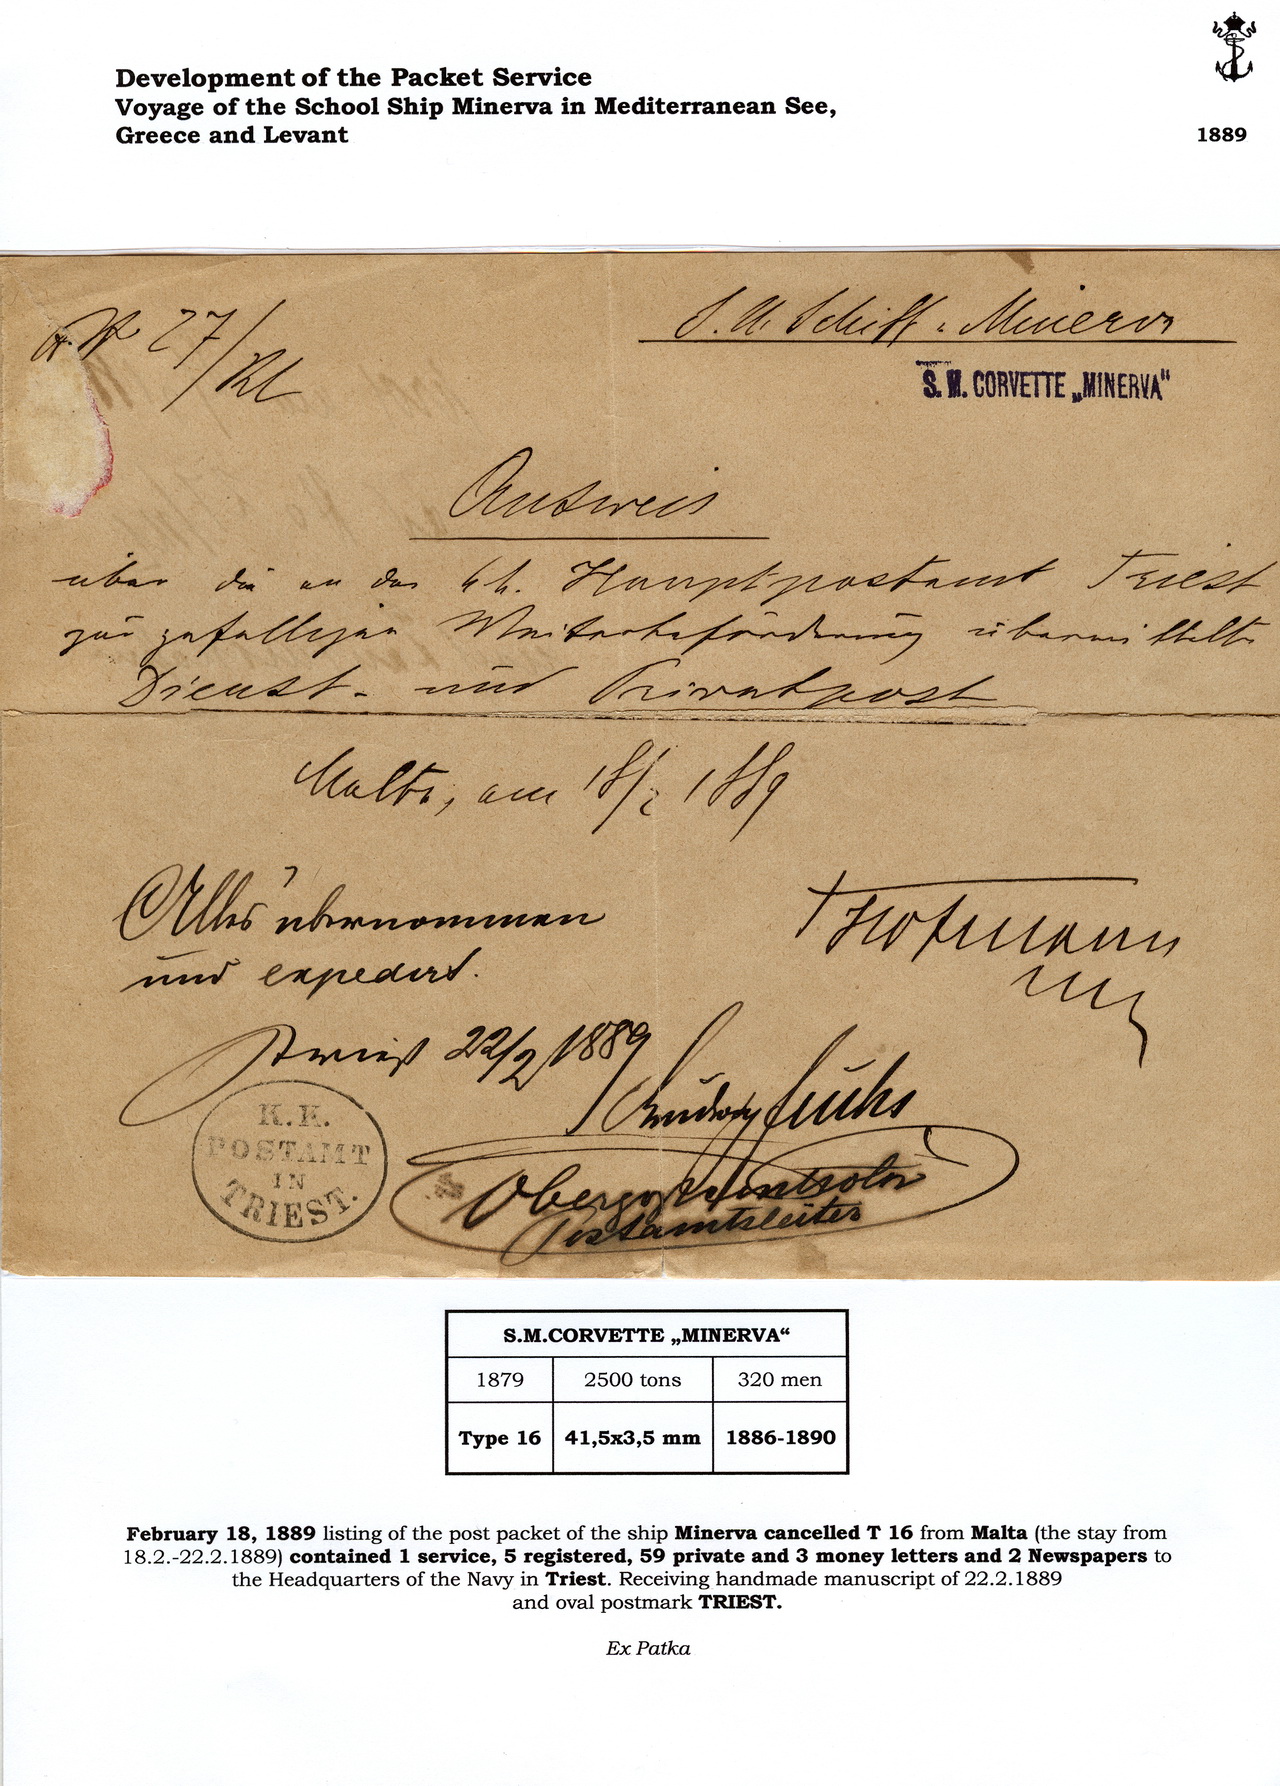 Development of the Packet Service
Voyage of the School Ship Minerva in Mediterranean See,
Greece and Levant
1889
27/
S. M. Schiff „ Minerva
S. M. CORVETTE „MINERVA"
Ausweis
über die an das k. k. Hauptpostamt Triest
zur gefälligen Weiterbeförderung übermittelte
Dienst- und Privatpost
Malta, am 18/2 1889
Alles übernommen
und expedirt.
Hofmann
Triest 22/2 1889
Ludwig Fuchs
K. K.
POSTAMT
IN
TRIEST.
Oberpostkontrolor
Postamtsleiter
S.M.CORVETTE „MINERVA“
1879 2500 tons 320 men
Type 16 41,5x3,5 mm 1886-1890
February 18, 1889 listing of the post packet of the ship Minerva cancelled T 16 from Malta (the stay from
18.2.-22.2.1889) contained 1 service, 5 registered, 59 private and 3 money letters and 2 Newspapers to
the Headquarters of the Navy in Triest. Receiving handmade manuscript of 22.2.1889
and oval postmark TRIEST.
Ex Patka